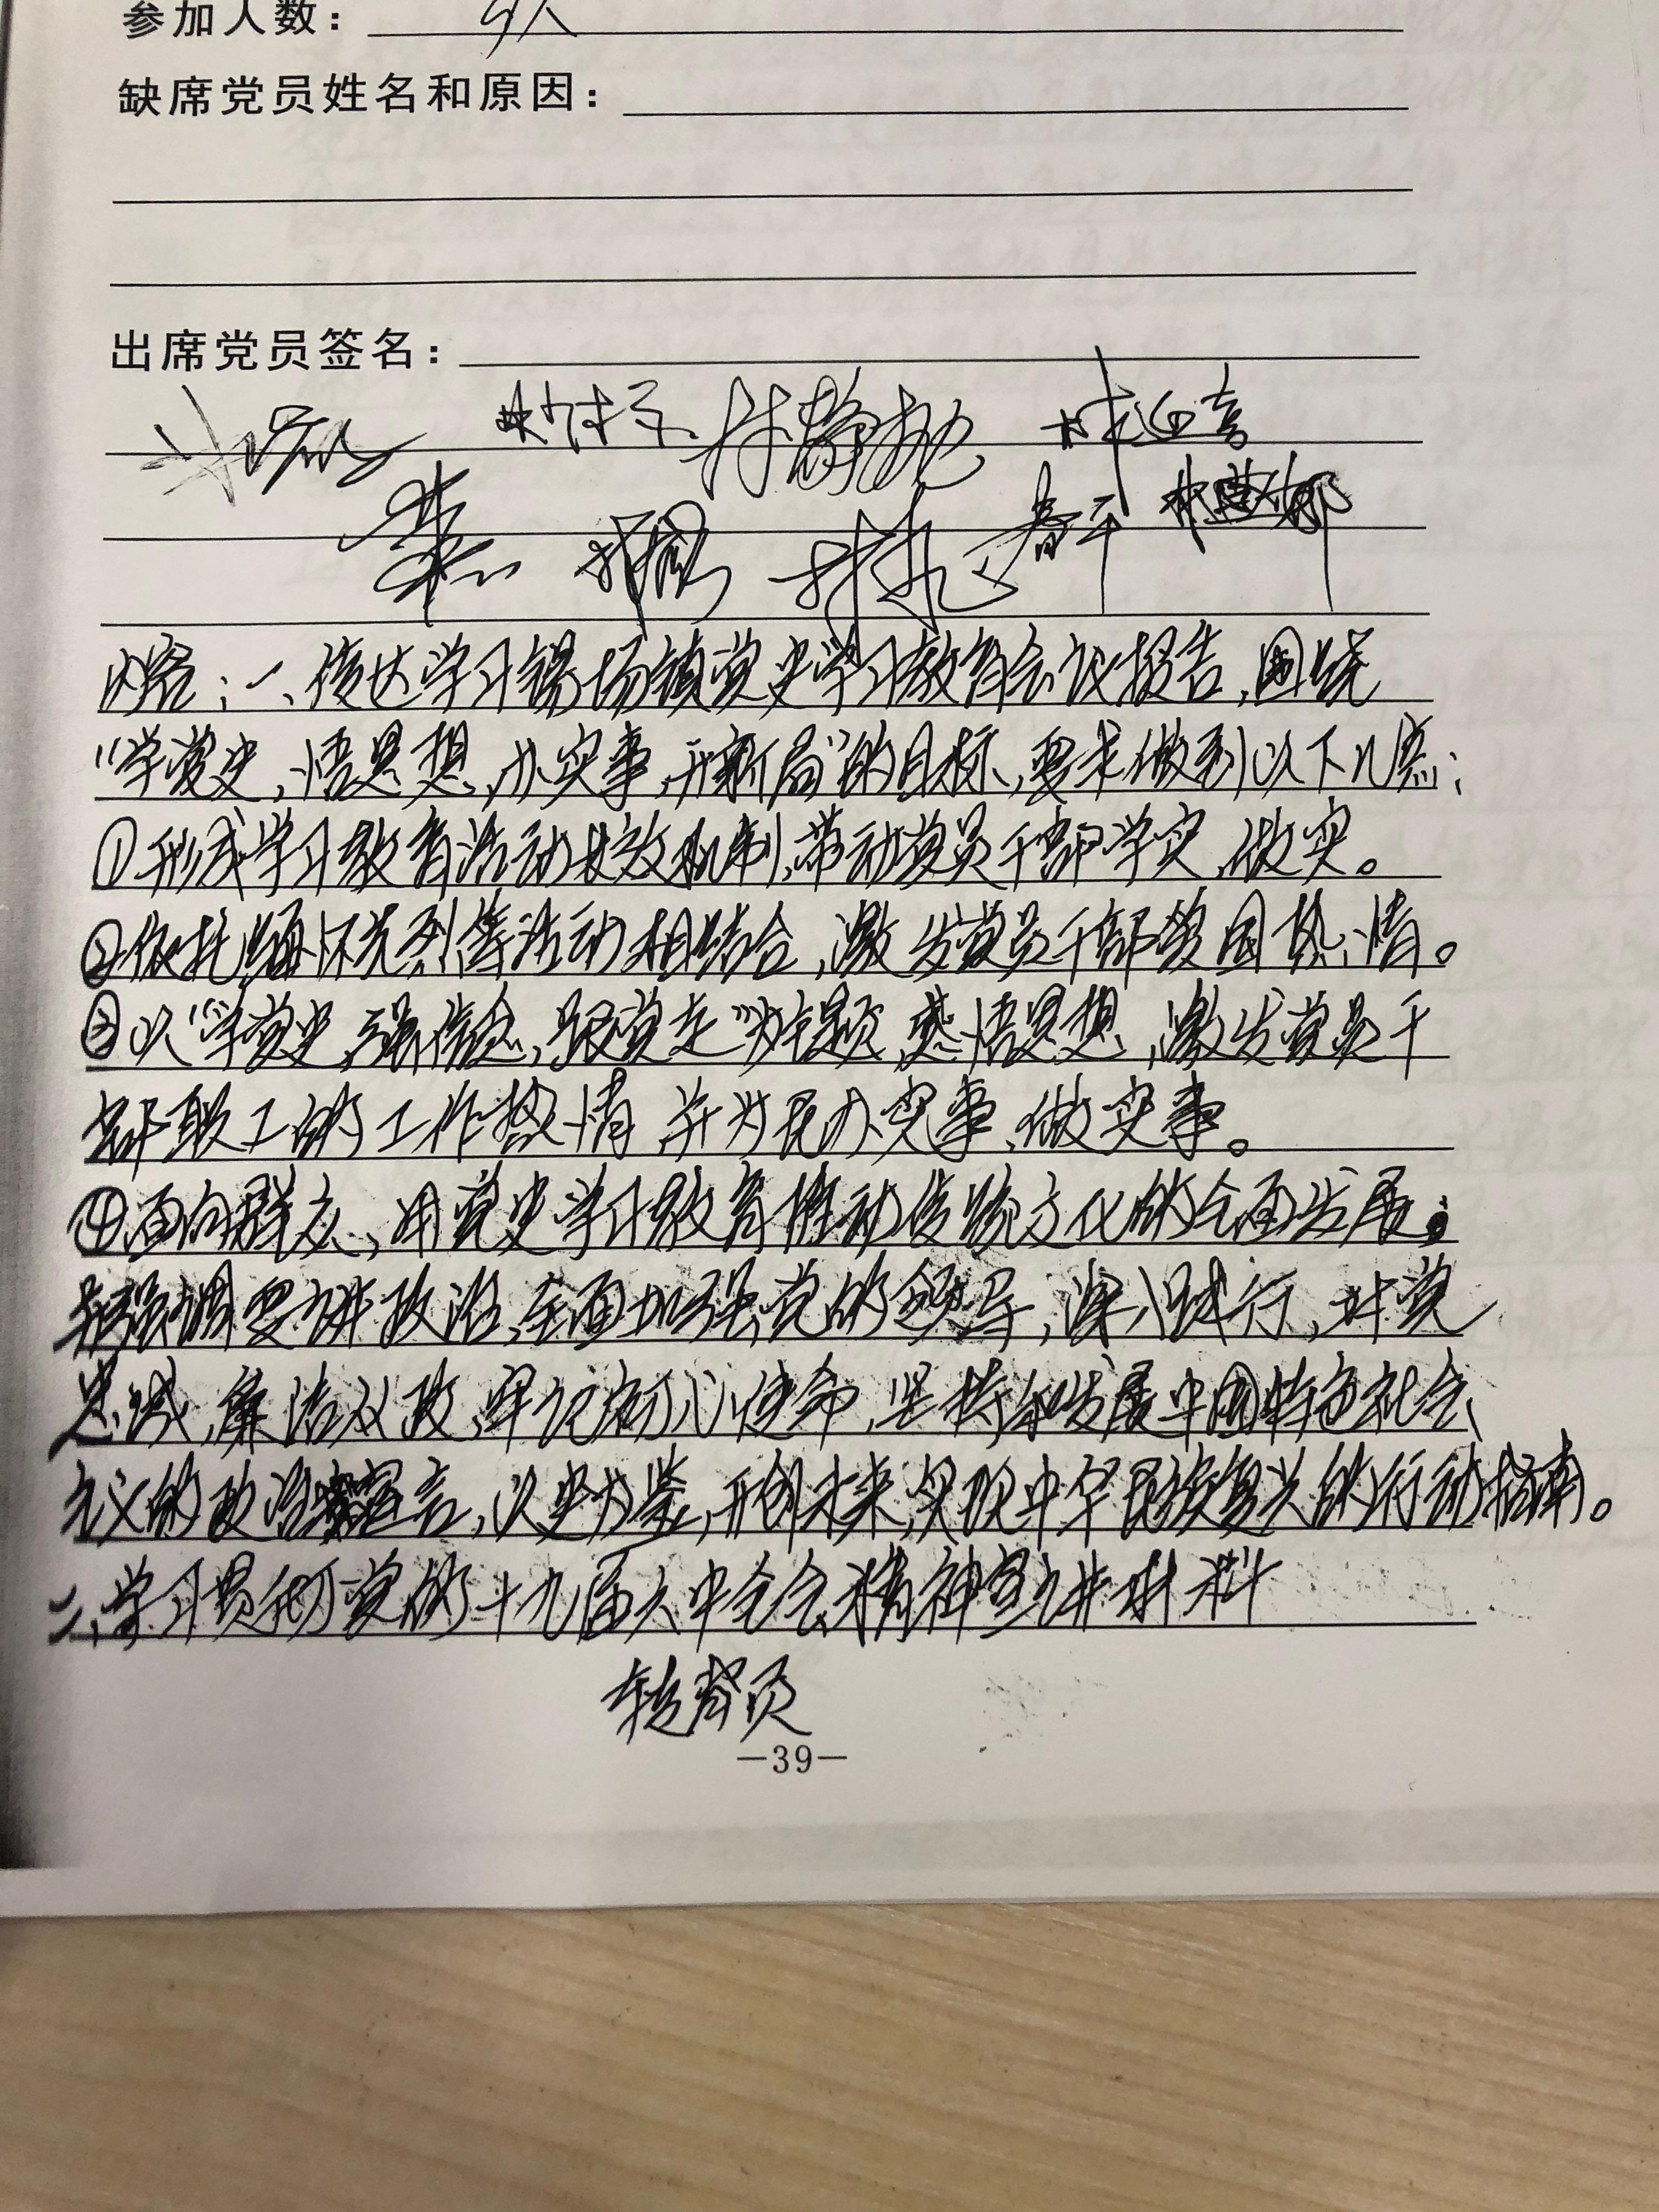 参加人数：
缺席党员姓名和原因：
出席党员签名：
内容：一、传达学习锡场镇党史学习教育会议报告，围绕
“学党史，悟思想，办实事，开新局”的目标，要求做到以下几点：
①形成学习教育活动长效机制，带动党员干部学实、做实。
②依托缅怀先烈等活动相结合，激发党员干部爱国热情。
③以“学党史，强信念，跟党走”为主题，感悟思想，激发党员干
部职工的工作热情，并为民办实事、做实事。
④面向群众，用党史学习教育推动传统文化的全面发展；
强调要讲政治，全面加强党的领导，深入践行，对党
忠诚，廉洁从政，牢记初心使命，坚持和发展中国特色社会
主义的政治宣言，以史为鉴，开创未来，实现中华民族复兴的行动指南。
二、学习贯彻党的十九届六中全会精神宣讲材料
转背页
—39—